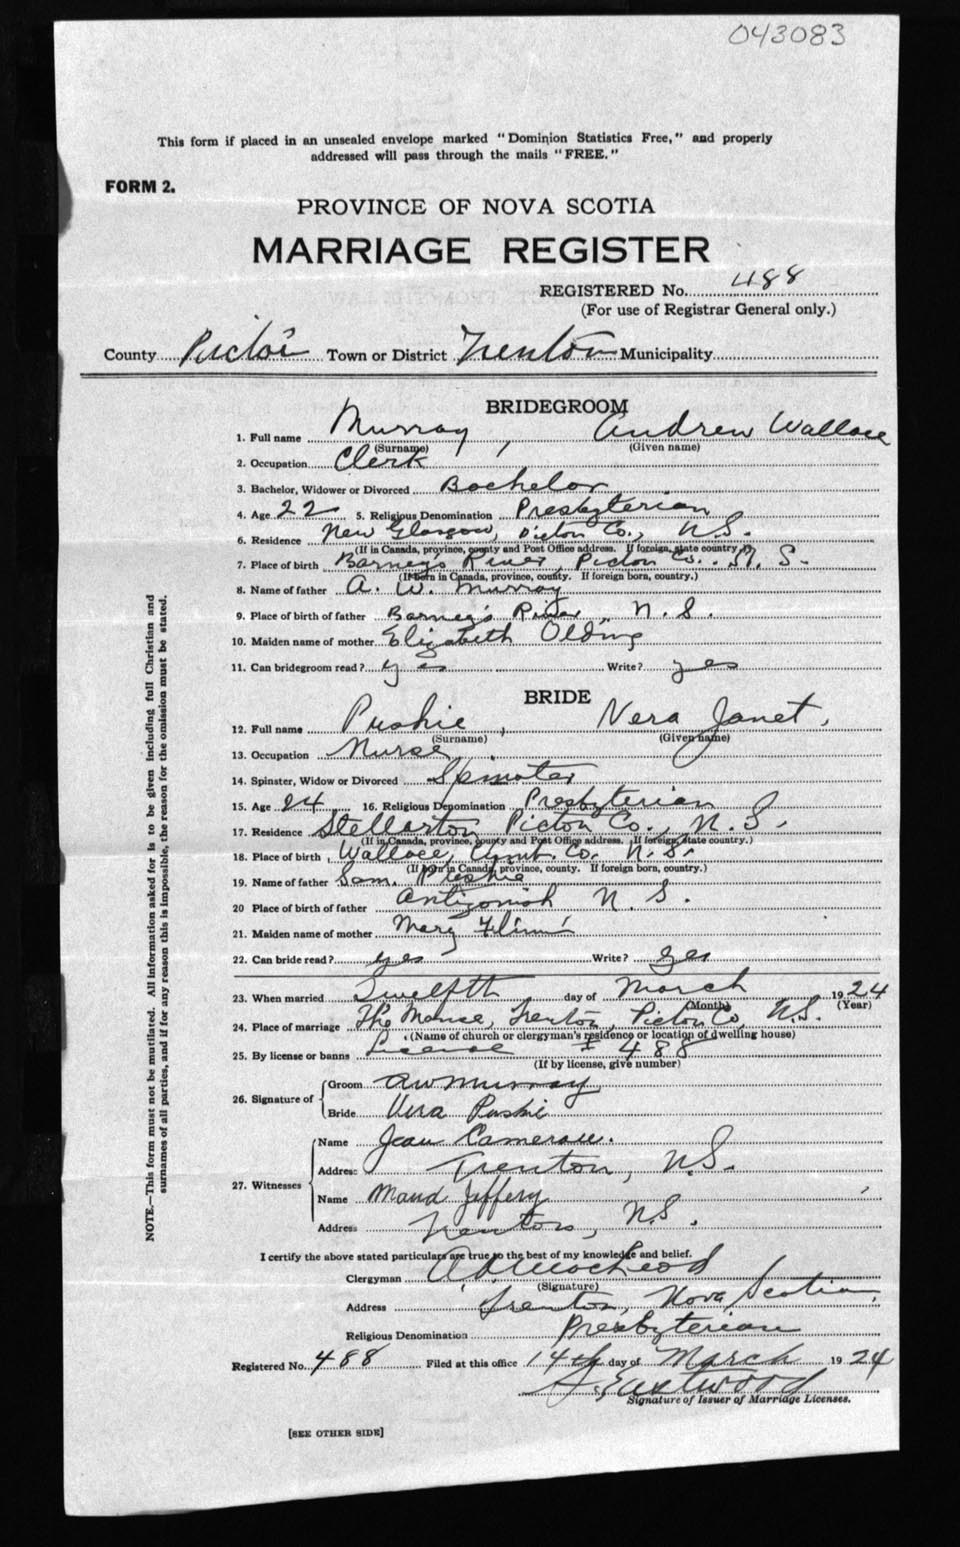 043083
This form if placed in an unsealed envelope marked "Dominion Statistics Free," and properly
addressed will pass through the mails "FREE."
FORM 2.
PROVINCE OF NOVA SCOTIA
MARRIAGE REGISTER
REGISTERED No. 488
(For use of Registrar General only.)
County Pictou Town or District Trenton Municipality
BRIDEGROOM
1. Full name Murray, Andrew Wallace
(Surname) (Given name)
2. Occupation Clerk
3. Bachelor, Widower or Divorced Bachelor
4. Age 22 5. Religious Denomination Presbyterian
6. Residence New Glasgow, Pictou Co., N.S.
(If in Canada, province, county and Post Office address. If foreign, state country.)
7. Place of birth Barney's River, Pictou Co. N.S.
(If born in Canada, province, county. If foreign born, country.)
8. Name of father A. W. Murray
9. Place of birth of father Barney's River, N.S.
10. Maiden name of mother Elizabeth Olding
11. Can bridegroom read? yes Write? yes
BRIDE
12. Full name Puskie, Vera Janet.
(Surname) (Given name)
13. Occupation Nurse
14. Spinster, Widow or Divorced Spinster
15. Age 24 16. Religious Denomination Presbyterian
17. Residence Stellarton Pictou Co., N.S.
(If in Canada, province, county and Post Office address. If foreign, state country.)
18. Place of birth Wallace, Cumb. Co. N.S.
(If born in Canada, province, county. If foreign born, country.)
19. Name of father Sam. Puskie
20 Place of birth of father Antigonish N.S.
21. Maiden name of mother Mary
22. Can bride read? yes Write? yes
23. When married Twelfth day of March 1924
(Month) (Year)
24. Place of marriage The Manse, Trenton, Pictou Co, N.S.
(Name of church or clergyman's residence or location of dwelling house)
25. By license or banns License # 488
(If by license, give number)
26. Signature of
Groom AW Murray
Bride Vera Puskie
27. Witnesses
Name Jean Cameron.
Address Trenton, N.S.
Name Maud Jeffery
Address Trenton, N.S.
I certify the above stated particulars are true to the best of my knowledge and belief.
Clergyman A D MacLeod
(Signature)
Address Trenton, Nova Scotia
Religious Denomination Presbyterian
Registered No. 488 Filed at this office 14th day of March 1924
Eastwood
Signature of Issuer of Marriage Licenses.
[SEE OTHER SIDE]
NOTE.—This form must not be mutilated. All information asked for is to be given including full Christian and
surnames of all parties, and if for any reason this is impossible, the reason for the omission must be stated.